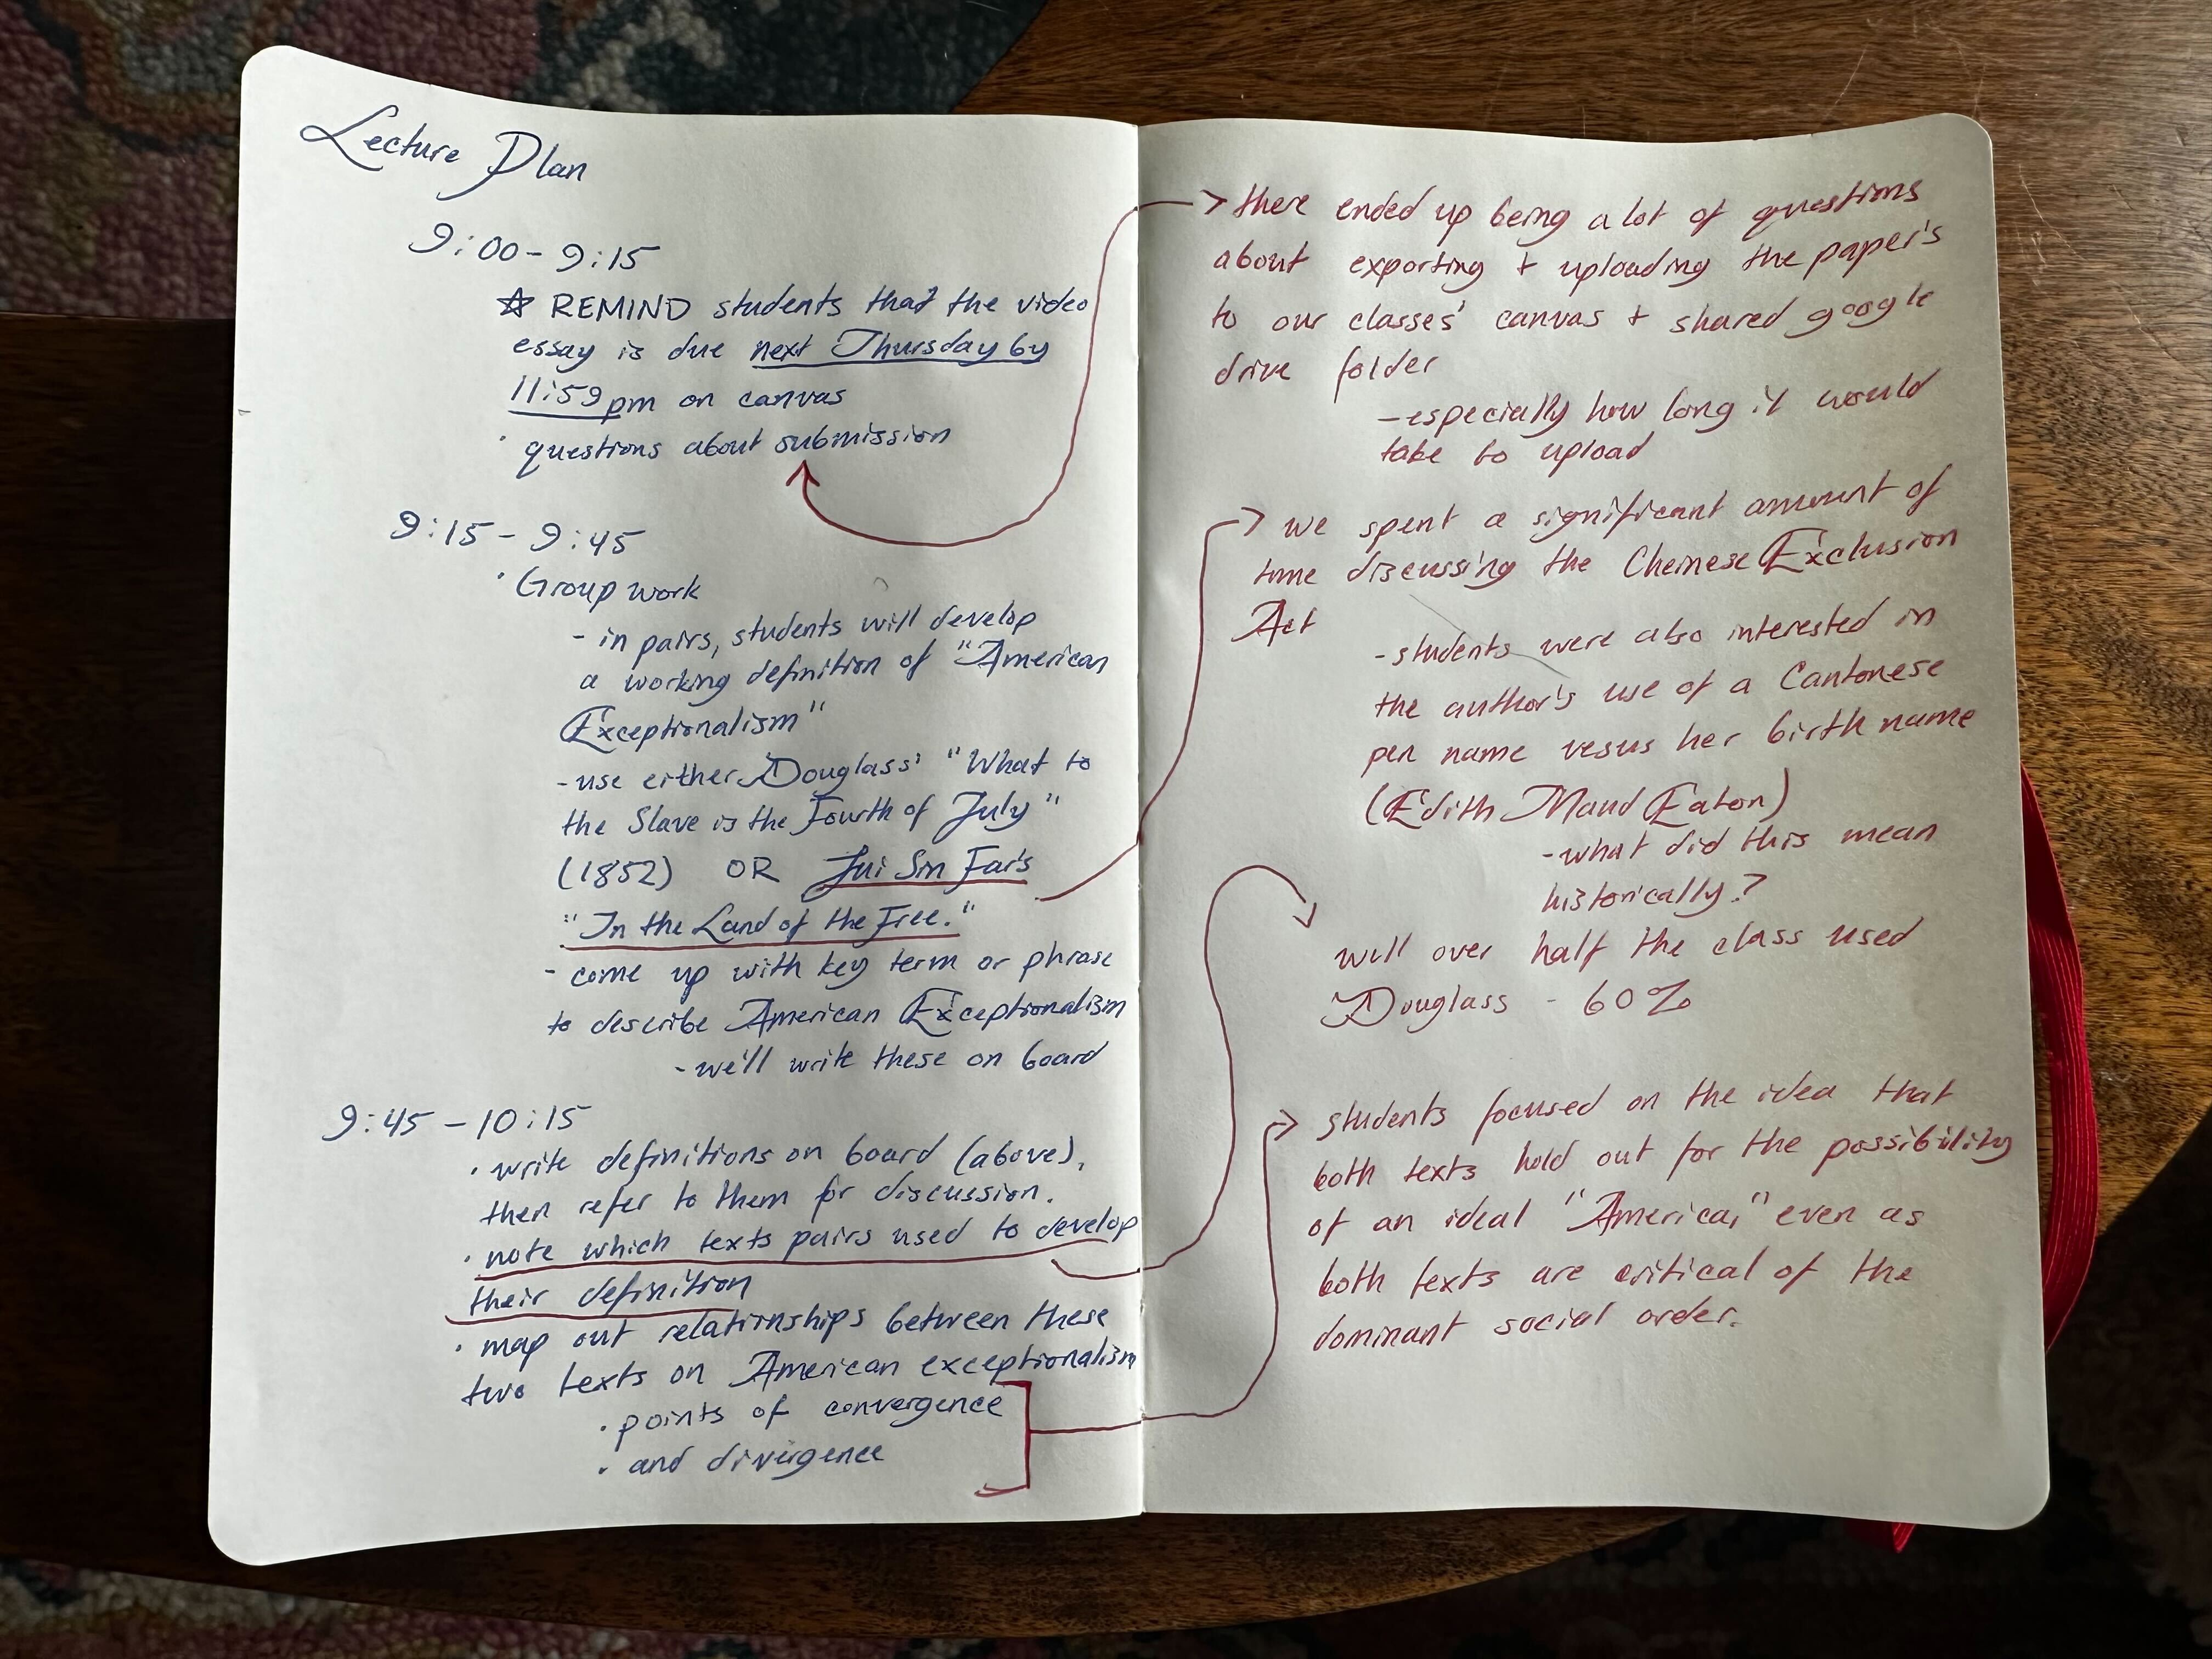 Lecture Plan
9:00 - 9:15
☆ REMIND students that the video
essay is due next Thursday by
11:59pm on canvas
· questions about submission
9:15 - 9:45
· Group work
- in pairs, students will develop
a working definition of "American
Exceptionalism"
- use either Douglass' "What to
the Slave is the Fourth of July"
(1852) OR Sui Sin Far's
"In the Land of the Free."
- come up with key term or phrase
to describe American Exceptionalism
- we'll write these on board
9:45 - 10:15
· write definitions on board (above),
then refer to them for discussion.
· note which texts pairs used to develop
their definition
· map out relationships between these
two texts on American exceptionalism
· points of convergence
· and divergence
there ended up being a lot of questions
about exporting + uploading the paper's
to our classes' canvas + shared google
drive folder
- especially how long it would
take to upload
we spent a significant amount of
time discussing the Cheinese Exclusion
Act
- students were also interested in
the author's use of a Cantonese
pen name vesus her birth name
(Edith Maud Eaton)
- what did this mean
historically?
well over half the class used
Douglass - 60%
students focused on the idea that
both texts hold out for the possibility
of an ideal "America," even as
both texts are critical of the
dominant social order.